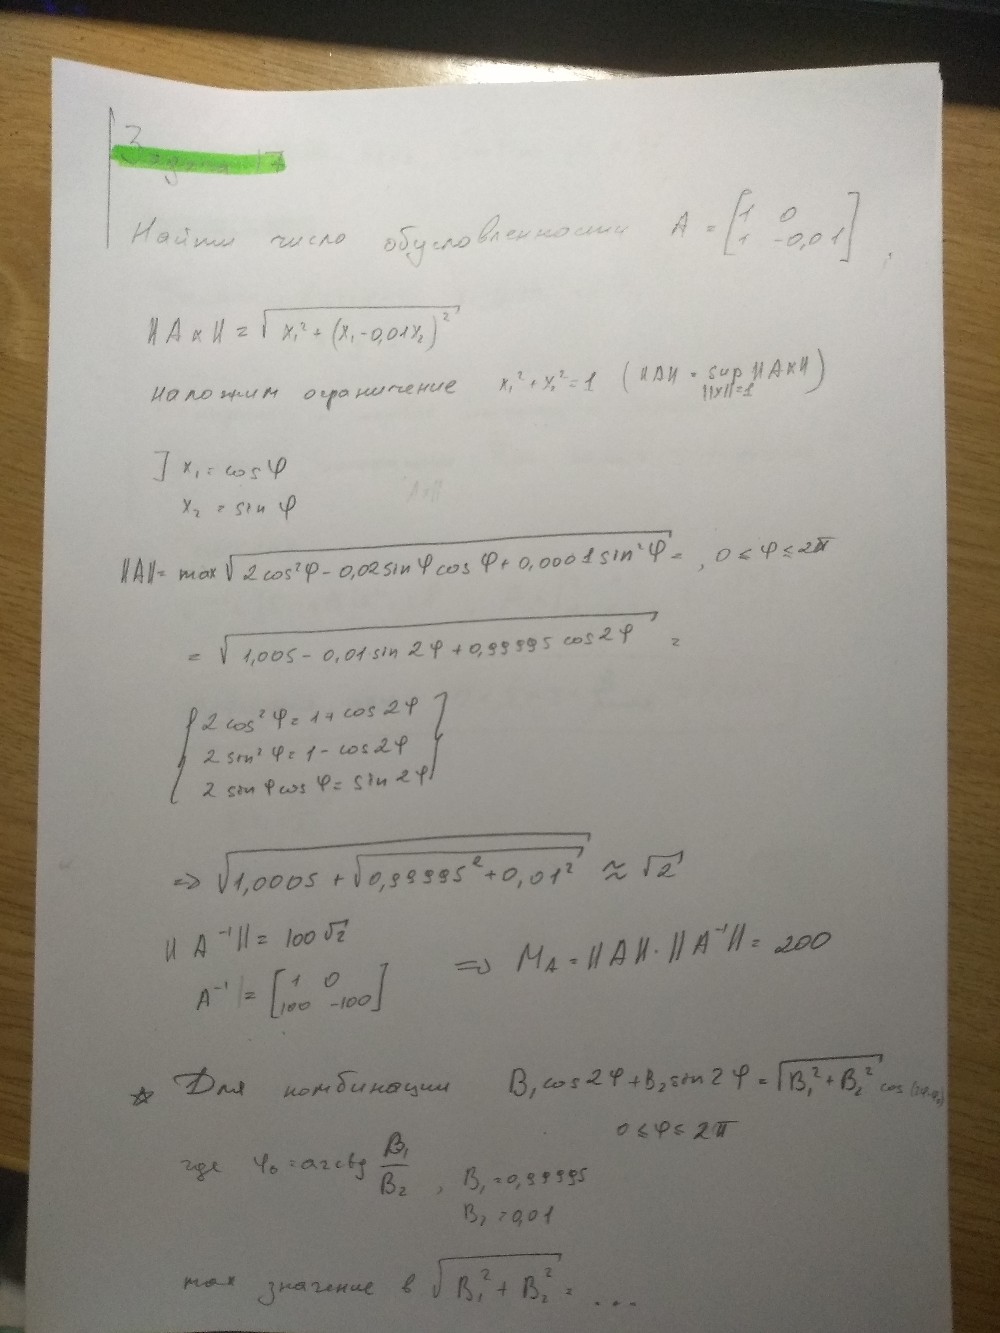 Задача 17
Найти число обусловленности A = [1 0; 1 -0,01],
||Ax|| = √(x₁² + (x₁ - 0,01x₂)²)
наложим ограничение x₁² + x₂² = 1 (||A|| = sup ||Ax||)
||x||=1
] x₁ = cos φ
x₂ = sin φ
||A|| = max √(2cos²φ - 0,02 sin φ cos φ + 0,0001 sin²φ) = , 0 ≤ φ ≤ 2π
= √(1,005 - 0,01 sin 2φ + 0,99995 cos 2φ) =
{2 cos²φ = 1 + cos 2φ
2 sin²φ = 1 - cos 2φ
2 sin φ cos φ = sin 2φ}
=> √(1,0005 + √(0,99995² + 0,01²)) ≈ √2
||A⁻¹|| = 100√2
A⁻¹ = [1 0; 100 -100]
=> M_A = ||A|| · ||A⁻¹|| = 200
☆ Для комбинации B₁ cos 2φ + B₂ sin 2φ = √(B₁² + B₂²) cos (2φ-φ₀)
0 ≤ φ ≤ 2π
где φ₀ = arctg B₁/B₂, B₁ = 0,99995
B₂ = 0,01
max значение в √(B₁² + B₂²) = ...